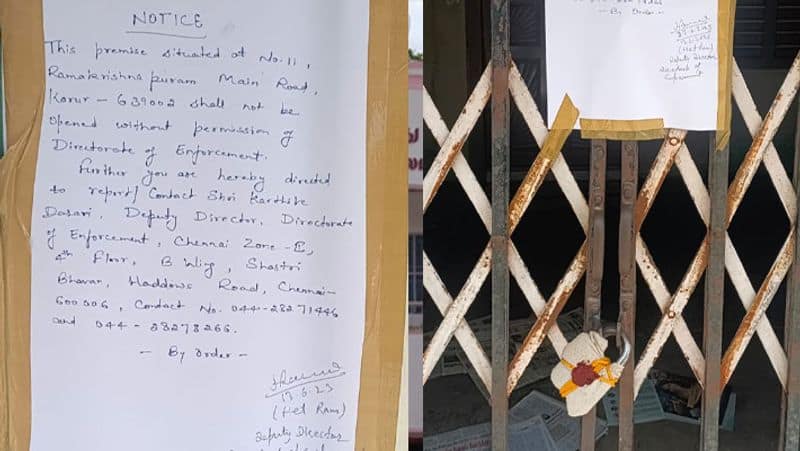 NOTICE
This premise situated at No.11,
Ramakrishnapuram Main Road,
Karur - 639002 shall not be
opened without permission of
Directorate of Enforcement.
Further you are hereby directed
to report/ contact Shri Karthik
Dasari, Deputy Director, Directorate
of Enforcement, Chennai Zone - II,
4th Floor, B wing, Shastri
Bhavan, Haddows Road, Chennai-
600006, Contact No. 044-28271446
and 044-28278266.
- By order -
13.6.23
(Het Ram)
Deputy Director
- By order -
13.6.23
(Het Ram)
Deputy Director